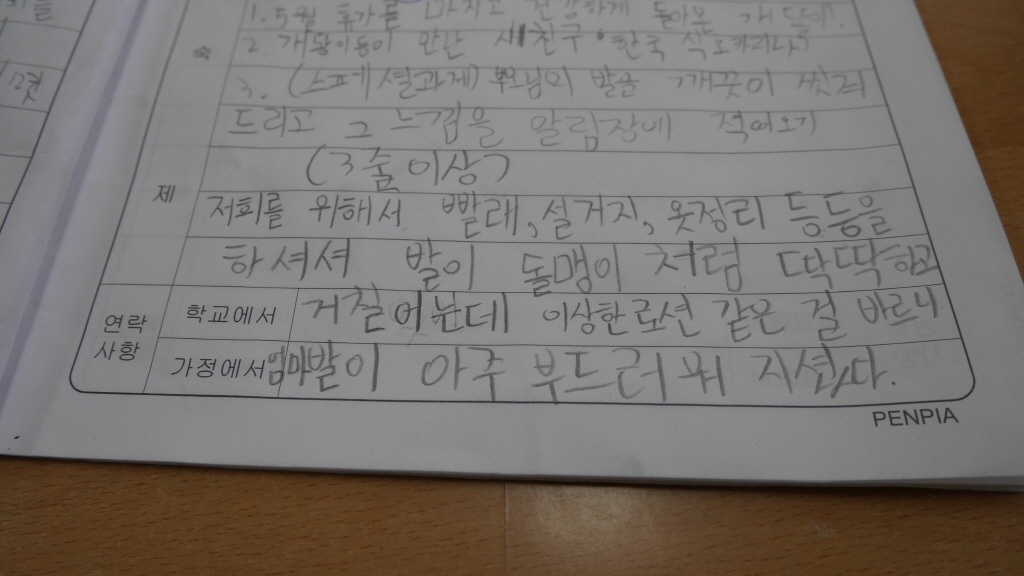 1. 5월 휴가를 마치고 건강하게 돌아온 개똥이!
2. 개똥이들이 만난 새친구
숙
3. (스페셜과제) 부모님의 발을 깨끗이 씻겨
드리고 그 느낌을 알림장에 적어오기
(3줄이상)
제
저희를 위해서 빨래, 설거지, 옷정리 등등을
하셔셔 발이 돌맹이 처럼 딱딱하고
연락 사항
학교에서 거칠어는데 이상한 로션 같은 걸 바르니
가정에서 엄마발이 아주 부드러워 지셨다.
PENPIA